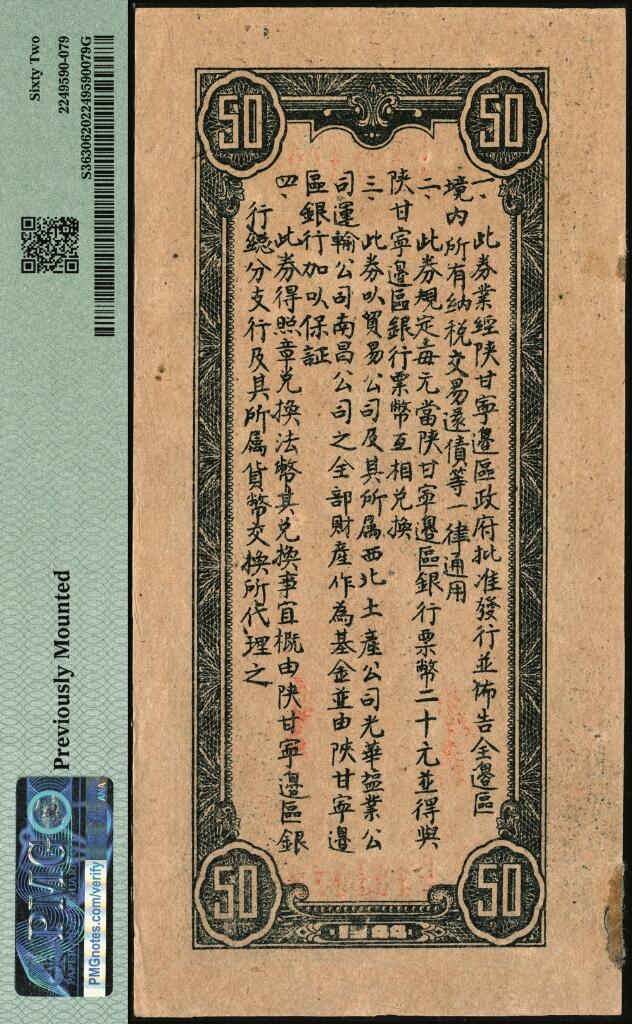 Sixty Two
2249590-079
S36306202249590079G
Previously Mounted
PMG
PMGnotes.com/verify
50
50
一、此券業經陝甘寧邊區政府批准發行並佈告全邊區
境内所有納税交易還債等一律通用
二、此券規定每元當陝甘寧邊區銀行票幣二十元並得與
陝甘寧邊區銀行票幣互相兑換
三、此券以貿易公司及其所属西北土產公司光華鹽業公
司運輸公司南昌公司之全部財產作為基金並由陝甘寧邊
區銀行加以保証
四、此券得照章兑換法幣其兑換事宜概由陝甘寧邊區銀
行總分支行及其所属貨幣交換所代理之
50
50